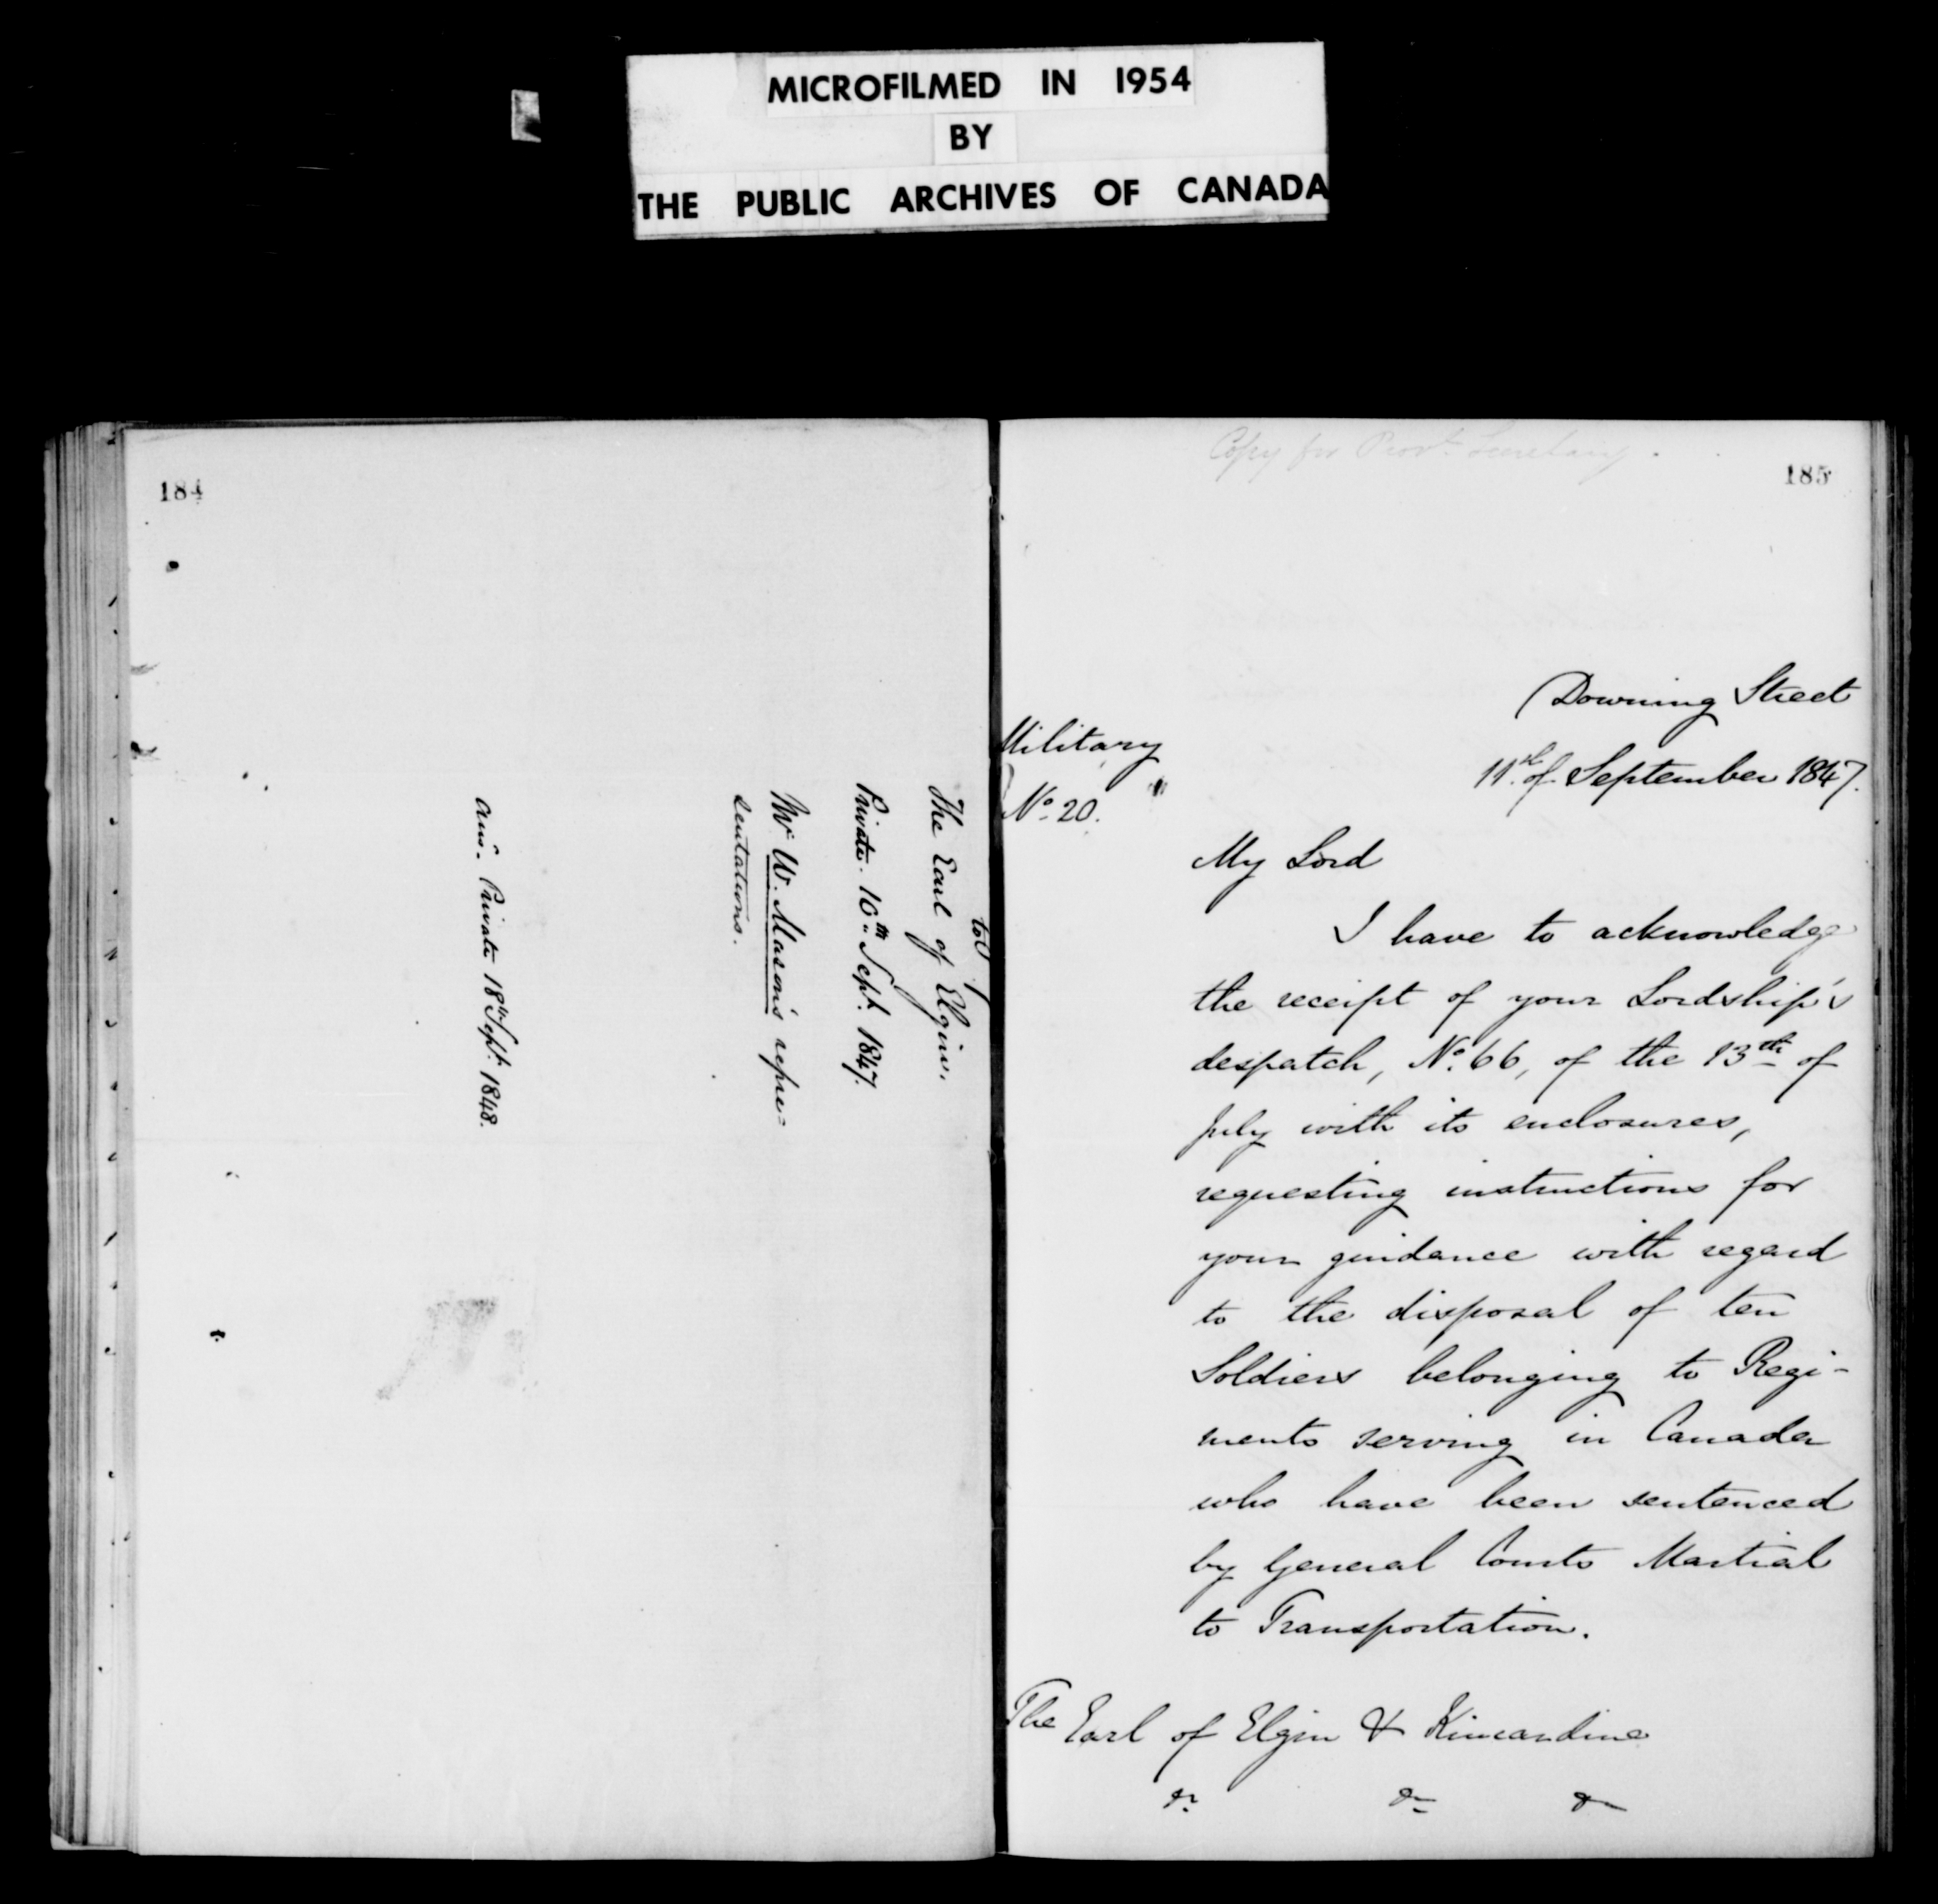 MICROFILMED IN 1954
BY
THE PUBLIC ARCHIVES OF CANADA
184
to
The Earl of Elgin.
Private. 16th Sept. 1847.
Mr W. Mason's repre=
sentations.
ansd. Private 18th Sept. 1848.
Copy for Provl. Secretary.
185
Downing Street
11th of September 1847.
Military
No. 20.
My Lord
I have to acknowledge
the receipt of your Lordship's
despatch, No. 66, of the 13th of
July with its enclosures,
requesting instructions for
your guidance with regard
to the disposal of ten
Soldiers belonging to Regi-
ments serving in Canada
who have been sentenced
by General Courts Martial
to Transportation.
The Earl of Elgin & Kincardine
&c &c &c